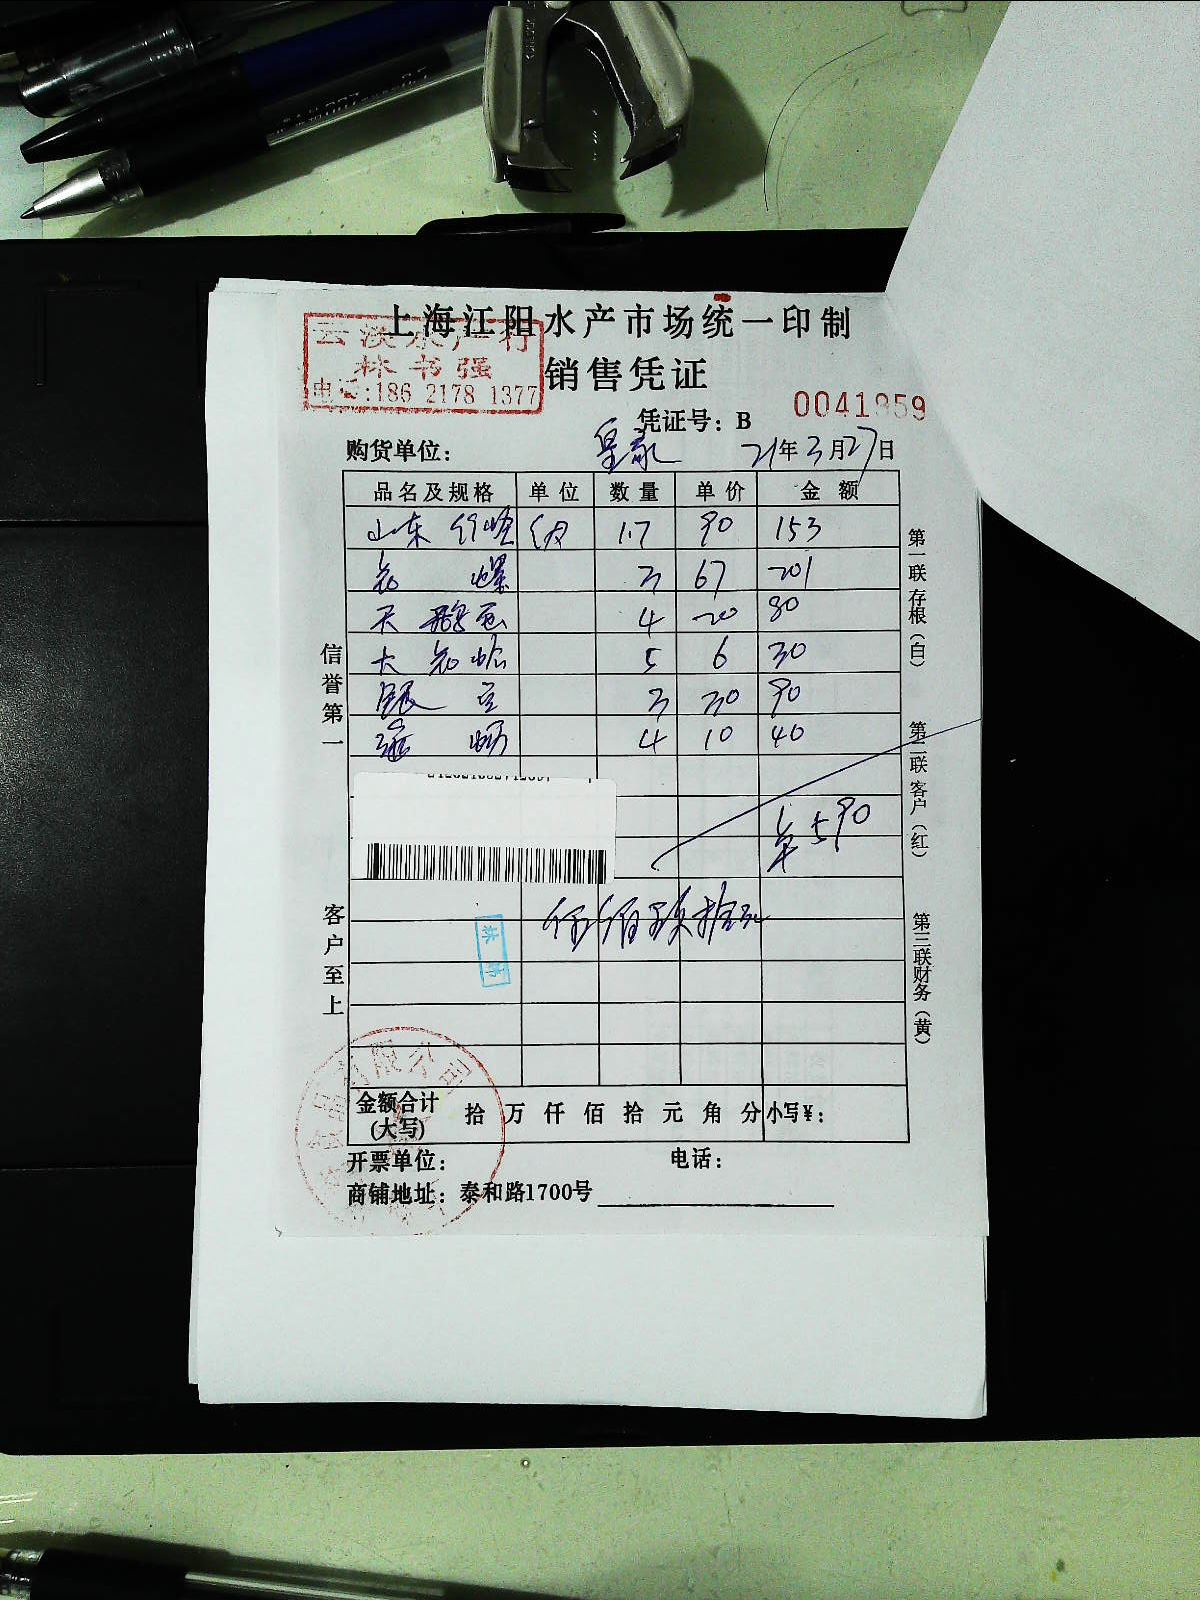 上海江阳水产市场统一印制
云淡水产行
林书强
电话:186 2178 1377
销售凭证
凭证号: B 0041859
购货单位: 皇家 21年3月27日
品名及规格 单位 数量 单价 金额
山东竹蛏 1.7 90 153
花螺 3 67 201
天鹅蛋 4 20 80
大花蛤 5 6 30
3 30 90
4 10 40
590
伍佰玖拾元
信誉第一
客户至上
第一联存根(白)
第二联客户(红)
第三联财务(黄)
金额合计(大写) 拾万仟佰拾元角分 小写¥:
开票单位: 电话:
商铺地址: 泰和路1700号